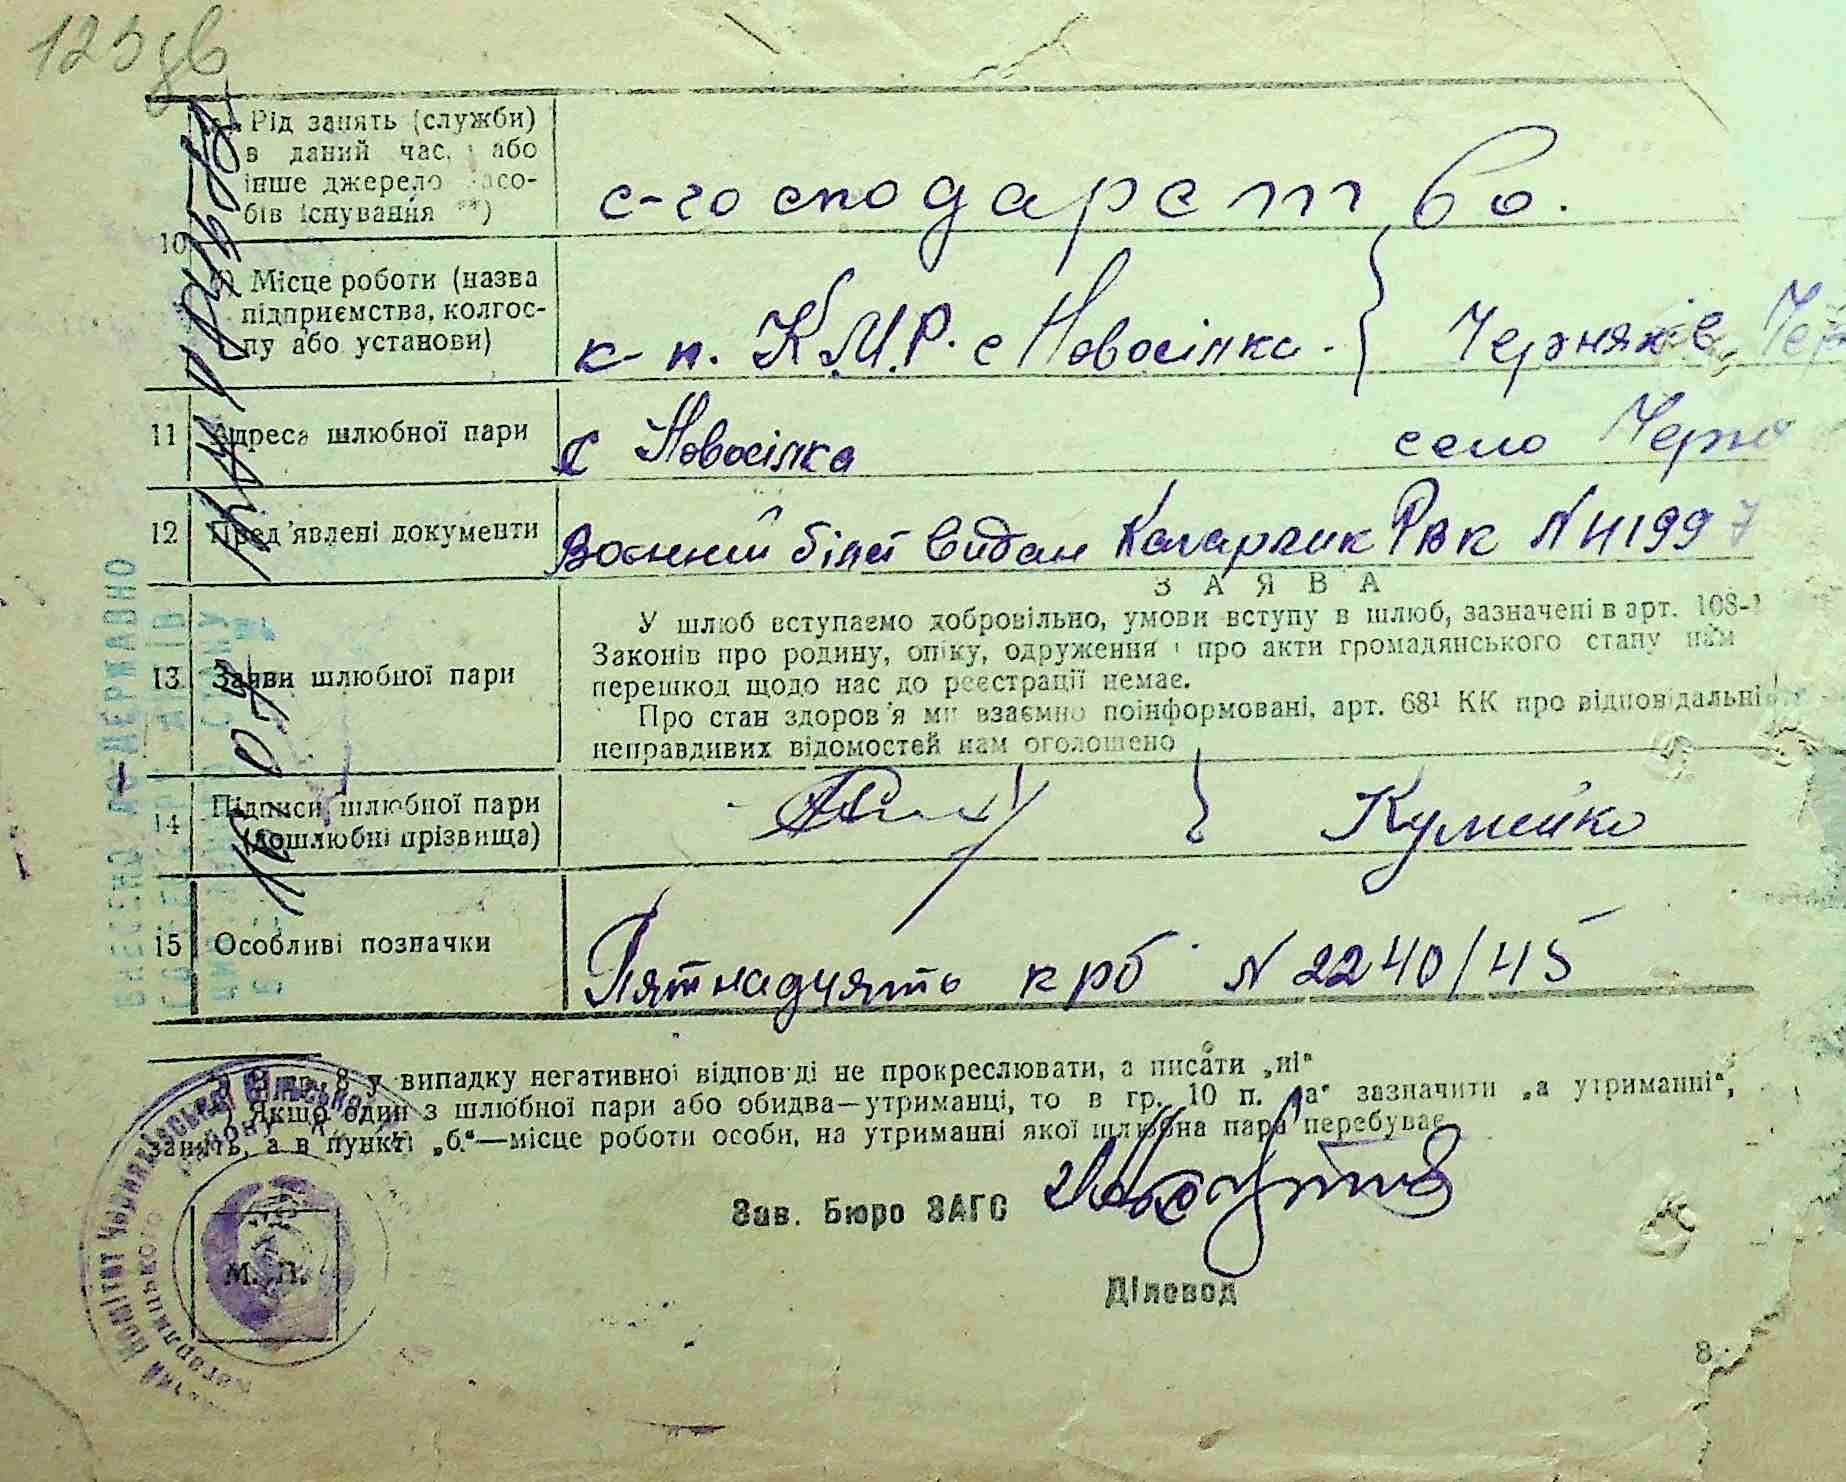 Рід занять (служби)
в даний час, або
інше джерело засо-
бів існування **)
с-господарство.
10
б) Місце роботи (назва
підприємства, колгос-
пу або установи)
к-п. К.М.Р. с Новосілка. Черняхів
11 Адреса шлюбної пари
с Новосілка село
12 Пред'явлені документи
Воєнний білет видан Кагарлик РВК N 41997
13 Заяви шлюбної пари
ЗАЯВА
У шлюб вступаємо добровільно, умови вступу в шлюб, зазначені в арт. 108-
Законів про родину, опіку, одруження і про акти громадянського стану нам
перешкод щодо нас до реєстрації немає.
Про стан здоров'я ми взаємно поінформовані, арт. 68¹ КК про відповідальні
неправдивих відомостей нам оголошено
14 Підписи шлюбної пари
(дошлюбні прізвища)
Кумейко
15 Особливі позначки
Пятнадцять крб N 2240/45
у випадку негативної відповіді не прокреслювати, а писати „ні"
Якщо один з шлюбної пари або обидва—утриманці, то в гр. 10 п. „а" зазначити „а утриманні",
занять, а в пункті „б"—місце роботи особи, на утриманні якої шлюбна пара перебуває
Зав. Бюро ЗАГС
Діловод
М. П.
8